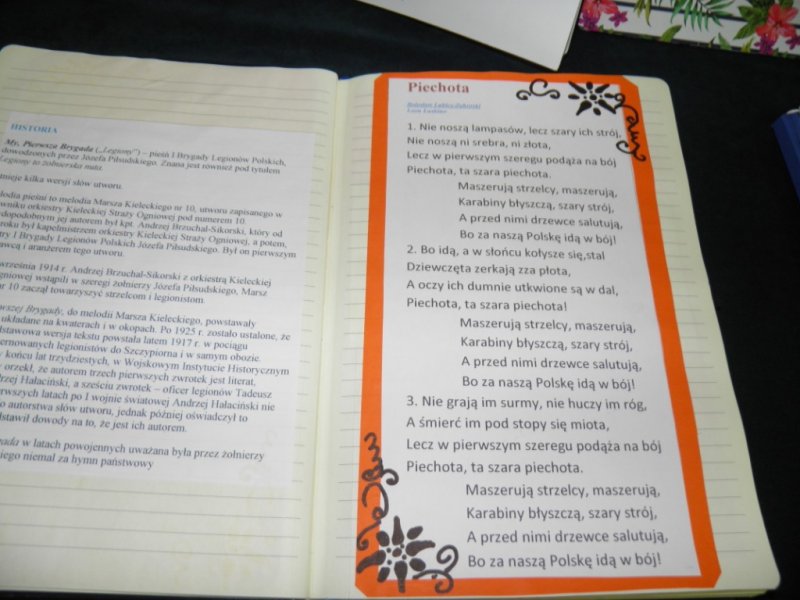 HISTORIA
My, Pierwsza Brygada („Legiony") – pieśń I Brygady Legionów Polskich,
dowodzonych przez Józefa Piłsudskiego. Znana jest również pod tytułem
Legiony to żołnierska nuta.
kilka wersji słów utworu.
pieśni to melodia Marsza Kieleckiego nr 10, utworu zapisanego w
orkiestry Kieleckiej Straży Ogniowej pod numerem 10.
jej autorem był kpt. Andrzej Brzuchal-Sikorski, który od
roku był kapelmistrzem orkiestry Kieleckiej Straży Ogniowej, a potem,
I Brygady Legionów Polskich Józefa Piłsudskiego. Był on pierwszym
i aranżerem tego utworu.
września 1914 r. Andrzej Brzuchal-Sikorski z orkiestrą Kieleckiej
wstąpili w szeregi żołnierzy Józefa Piłsudskiego, Marsz
nr 10 zaczął towarzyszyć strzelcom i legionistom.
Brygady, do melodii Marsza Kieleckiego, powstawały
układane na kwaterach i w okopach. Po 1925 r. zostało ustalone, że
wersja tekstu powstała latem 1917 r. w pociągu
legionistów do Szczypiorna i w samym obozie.
końcu lat trzydziestych, w Wojskowym Instytucie Historycznym
orzekł, że autorem trzech pierwszych zwrotek jest literat,
Hałaciński, a sześciu zwrotek – oficer legionów Tadeusz
latach po I wojnie światowej Andrzej Hałaciński nie
autorstwa słów utworu, jednak później oświadczył to
dowody na to, że jest ich autorem.
w latach powojennych uważana była przez żołnierzy
niemal za hymn państwowy
Piechota
Bolesław Lubicz-Zahorski
1. Nie noszą lampasów, lecz szary ich strój,
Nie noszą ni srebra, ni złota,
Lecz w pierwszym szeregu podąża na bój
Piechota, ta szara piechota.
Maszerują strzelcy, maszerują,
Karabiny błyszczą, szary strój,
A przed nimi drzewce salutują,
Bo za naszą Polskę idą w bój!
2. Bo idą, a w słońcu kołysze się,stal
Dziewczęta zerkają zza płota,
A oczy ich dumnie utkwione są w dal,
Piechota, ta szara piechota!
Maszerują strzelcy, maszerują,
Karabiny błyszczą, szary strój,
A przed nimi drzewce salutują,
Bo za naszą Polskę idą w bój!
3. Nie grają im surmy, nie huczy im róg,
A śmierć im pod stopy się miota,
Lecz w pierwszym szeregu podąża na bój
Piechota, ta szara piechota.
Maszerują strzelcy, maszerują,
Karabiny błyszczą, szary strój,
A przed nimi drzewce salutują,
Bo za naszą Polskę idą w bój!